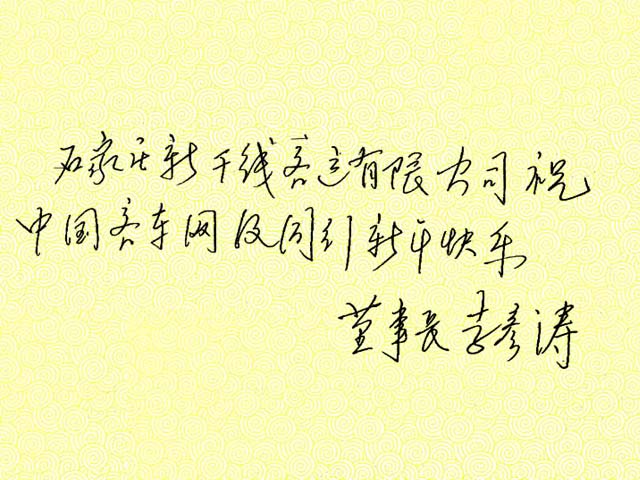 石家庄新干线客运有限公司祝
中国客车网及同行新年快乐
董事长李彦涛